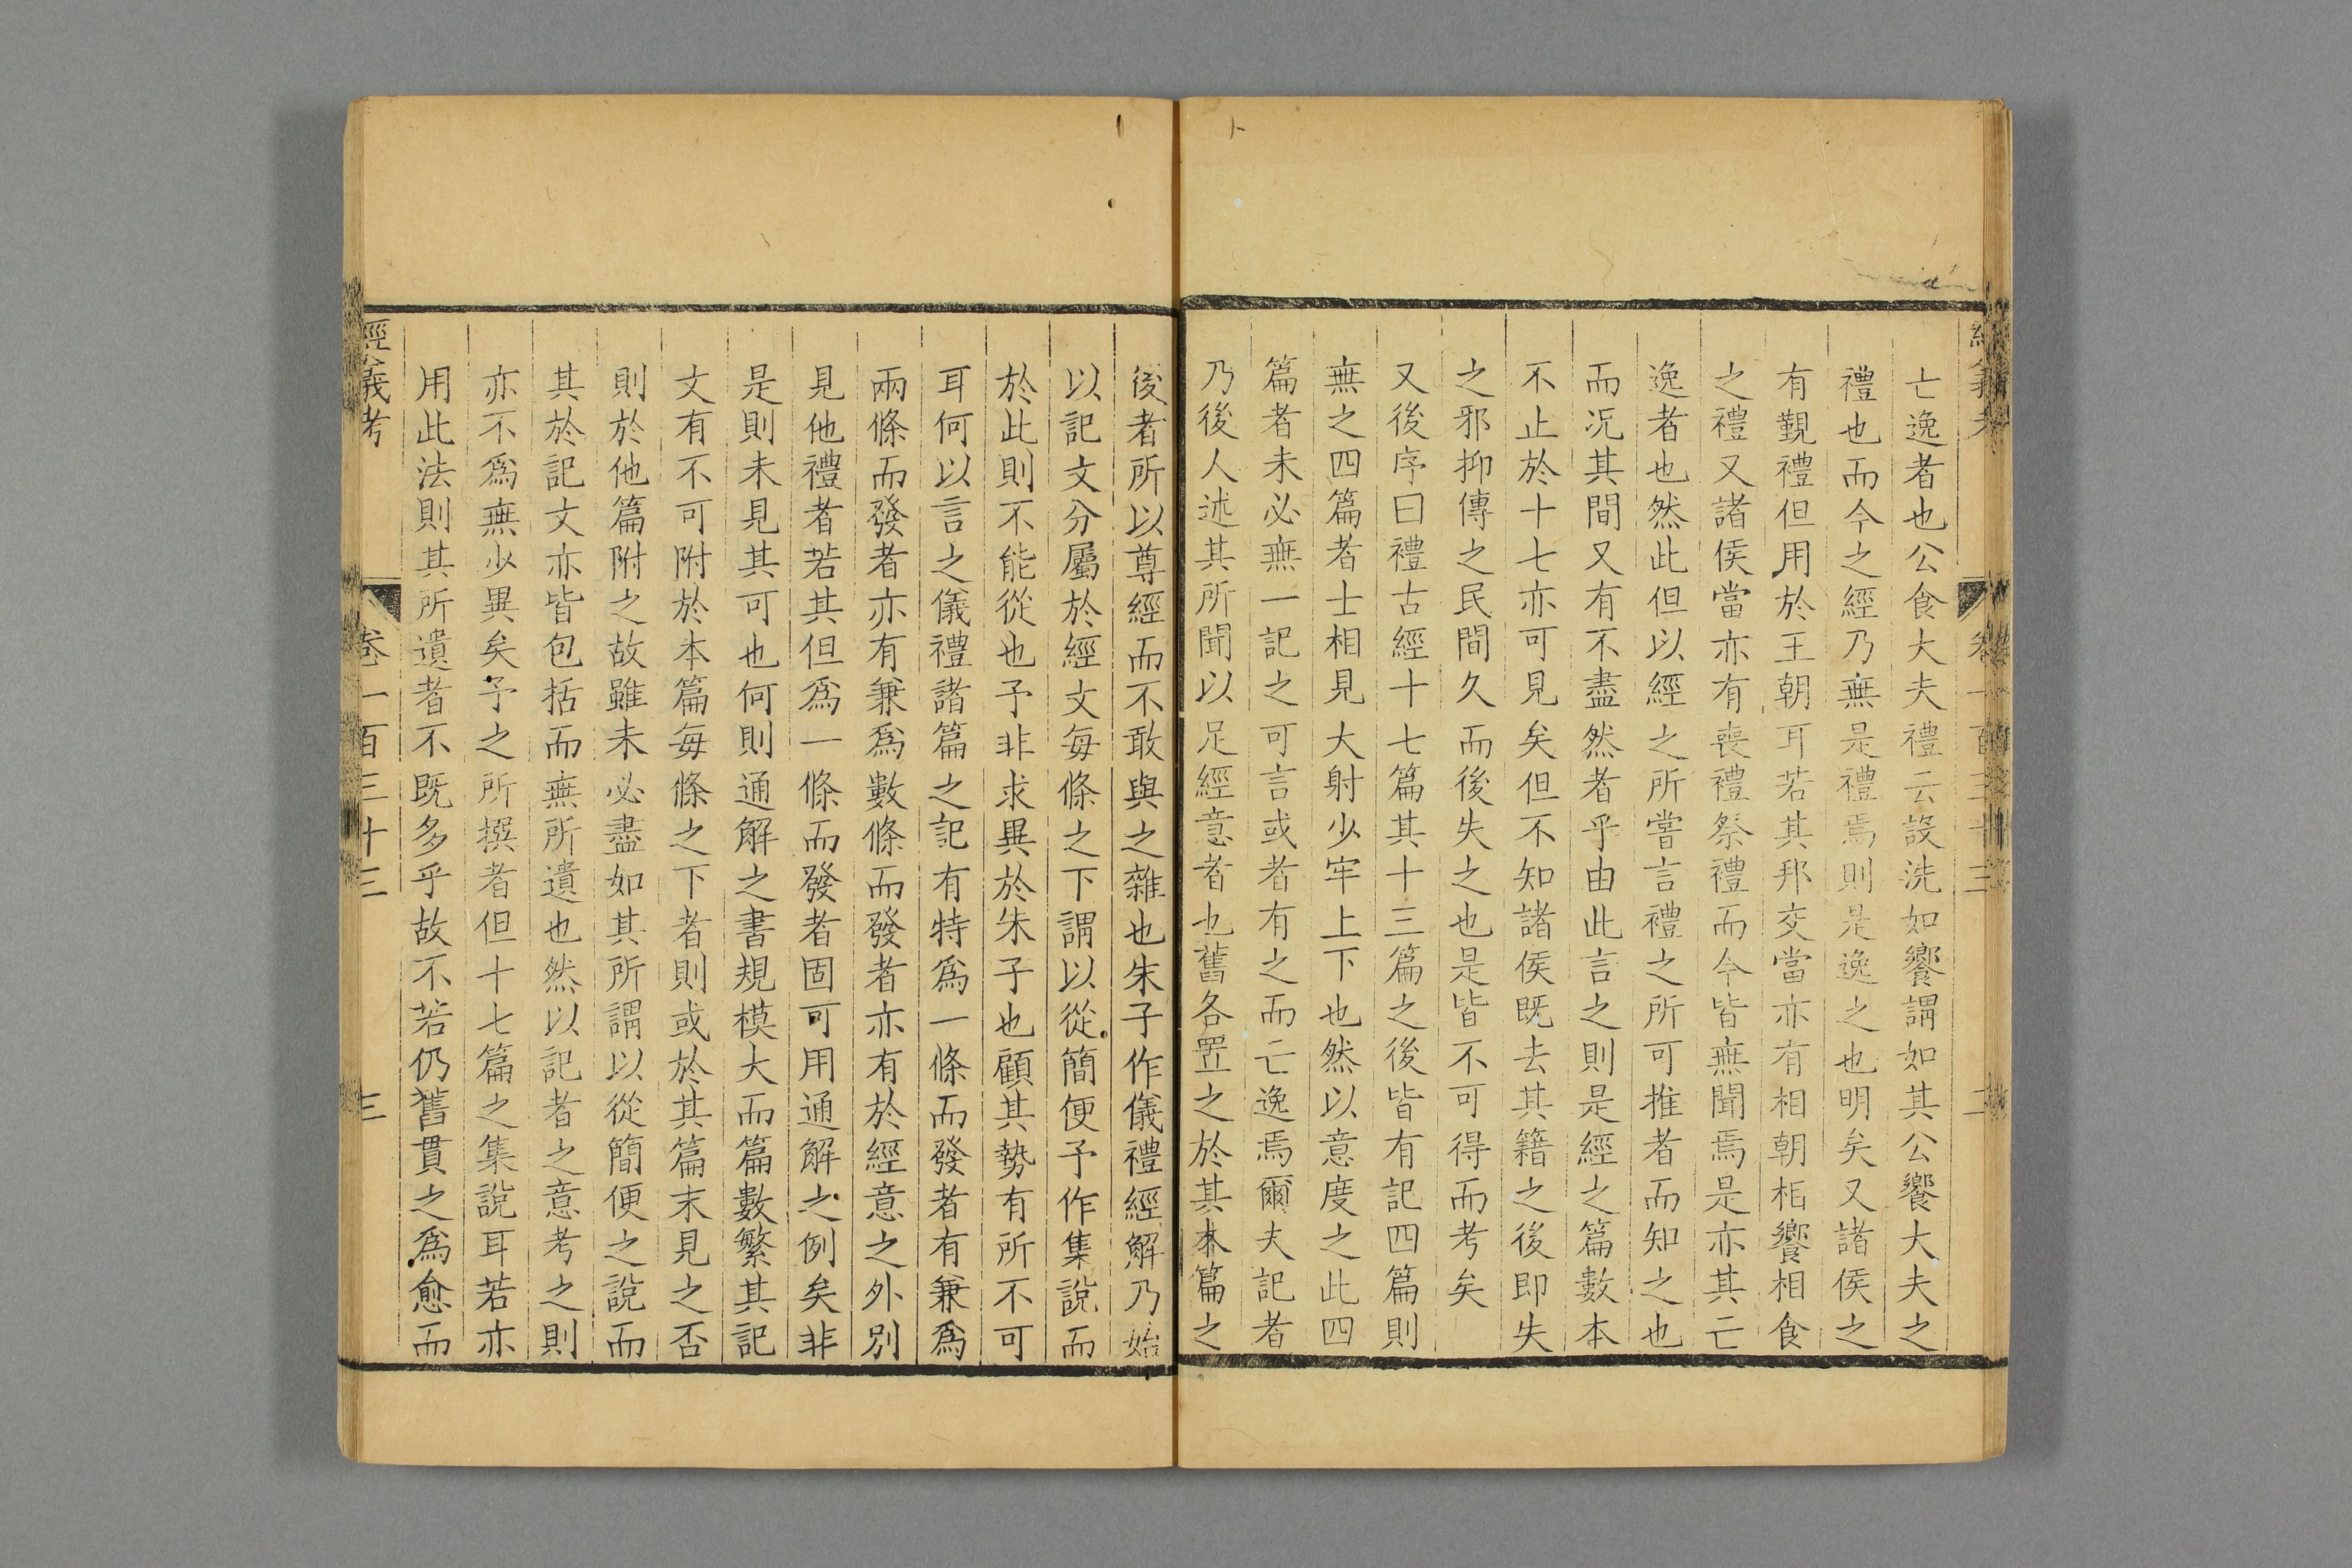 亡逸者也公食大夫禮云設洗如饗謂如其公饗大夫之
禮也而今之經乃無是禮焉則是逸之也明矣又諸侯之
有覲禮但用於王朝耳若其邦交當亦有相朝相饗相食
之禮又諸侯當亦有喪禮祭禮而今皆無聞焉是亦其亡
逸者也然此但以經之所嘗言禮之所可推者而知之也
而況其間又有不盡然者乎由此言之則是經之篇數本
不止於十七亦可見矣但不知諸侯既去其籍之後即失
之邪抑傳之民間久而後失之也是皆不可得而考矣
又後序曰禮古經十七篇其十三篇之後皆有記四篇則
無之四篇者士相見大射少牢上下也然以意度之此四
篇者未必無一記之可言或者有之而亡逸焉爾夫記者
乃後人述其所聞以足經意者也舊各置之於其本篇之
後者所以尊經而不敢與之雜也朱子作儀禮經解乃始
以記文分屬於經文每條之下謂以從簡便予作集說而
於此則不能從也予非求異於朱子也顧其勢有所不可
耳何以言之儀禮諸篇之記有特為一條而發者有兼為
兩條而發者亦有兼為數條而發者亦有於經意之外別
見他禮者若其但為一條而發者固可用通解之例矣非
是則未見其可也何則通解之書規模大而篇數繁其記
文有不可附於本篇每條之下者則或於其篇末見之否
則於他篇附之故雖未必盡如其所謂以從簡便之說而
其於記文亦皆包括而無所遺也然以記者之意考之則
亦不為無少異矣予之所撰者但十七篇之集說耳若亦
用此法則其所遺者不既多乎故不若仍舊貫之為愈而
經義考
卷一百三十三
三